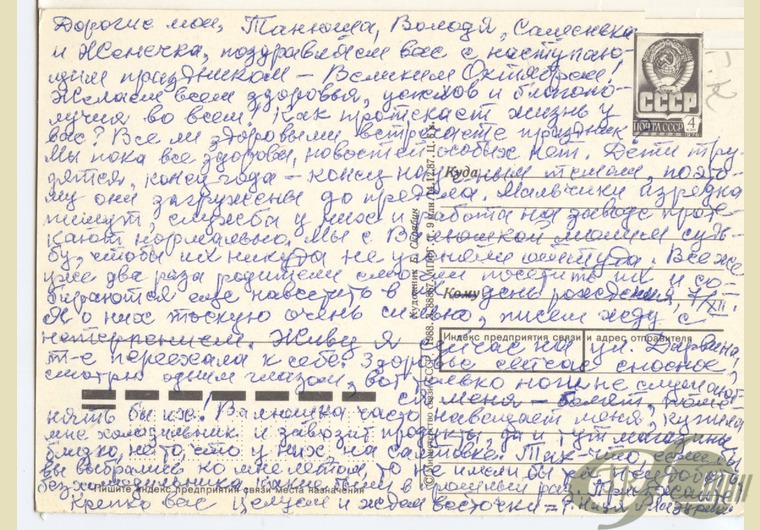 Дорогие мои, Танюша, Володя,
и Женечка, поздравляем вас с наступаю-
щим праздником – Великим Октябрём!
Желаем всем здоровья, успехов и благопо-
лучия во всём! Как протекает жизнь у
вас? Все ли здоровыми встречаете праздник?
Мы пока все здоровы, новостей особых нет. Дети тру-
дятся, конец года – конец научным темам, поэто-
му они загружены до предела. Мальчики изредка
пишут, служба у них и работа на заводе проте-
кают нормально. Мы с молим судь-
бу, чтобы их никуда не Все же
уже два раза родители смогли посетить их и со-
бираются ещё навестить в день рождения, 7/XII.
Я о них тоскую очень сильно, писем жду с
нетерпением. Живу я сейчас на ул. Дарвина,
т-е переехала к себе. Здоровье сейчас сносное,
смотрю одним глазом, вот только ноги не слушают-
ся меня – болят,
нять бы их! Валюшка часто навещает меня, купила
мне холодильник и завозит продукты, да и тут магазины
близко, не то, что у них на Салтовке. Так что, если бы
вы выбрались ко мне летом, то не имели бы
без холодильника, какие были в прошлый раз.
Крепко вас целуем и ждём весточки –
ПОЧТА СССР
4
СССР
Куда
Кому
Индекс предприятия связи и адрес отправителя
Пишите индекс предприятия связи места назначения